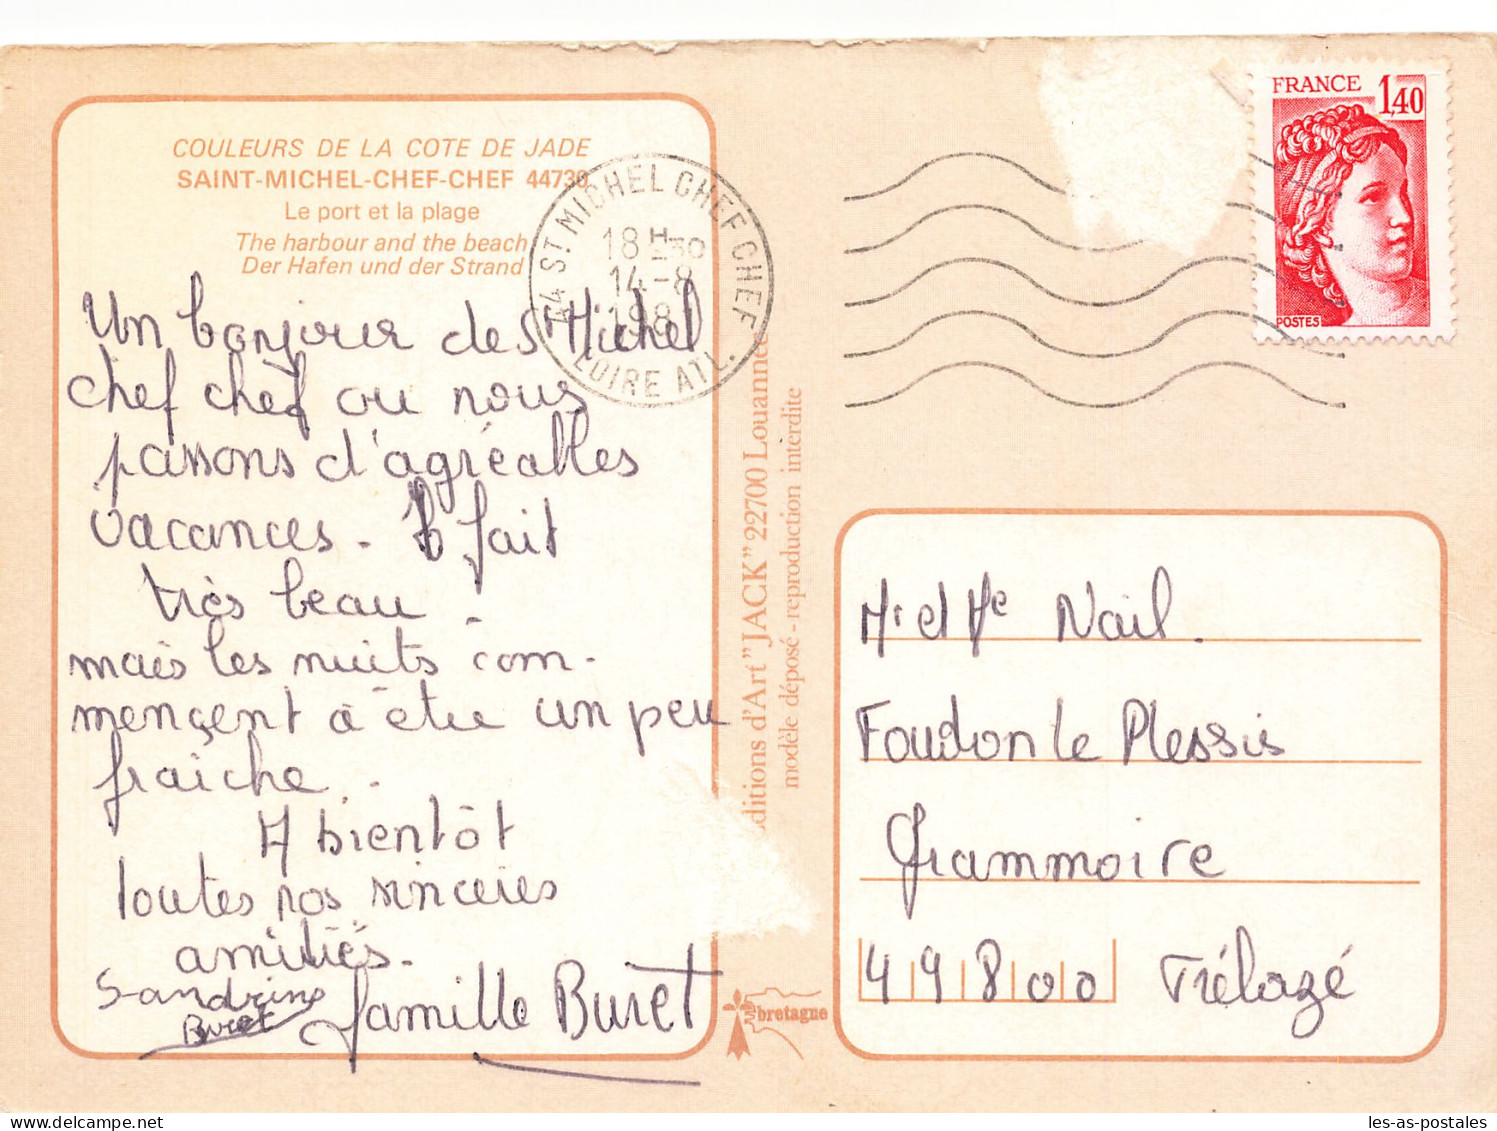 COULEURS DE LA COTE DE JADE
SAINT-MICHEL-CHEF-CHEF 44730
Le port et la plage
The harbour and the beach
Der Hafen und der Strand
Un bonjour de St Michel
chef chef ou nous
passons d'agréables
vacances - Il fait
très beau -
mais les nuits com-
mençent à être un peu
fraîche.
A bientôt
Toutes nos sincères
amitiés.
Sandrine
Buret
famille Buret
44 ST MICHEL CHEF CHEF
18H30
14-8
198
LOIRE ATL.
ditions d'Art "JACK" 22700 Louannec
modèle déposé - reproduction interdite
bretagne
FRANCE
1,40
POSTES
Mr et Me Nail.
Foudon le Plessis
Grammoire
49800 Trélazé
les-as-postales